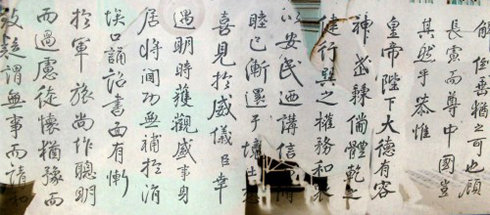 解垂猶之可也顧
長慮而尊中國豈
其然乎恭惟
皇帝陛下大德有容
神武體乾之
健行巽之權務和
以安民迺講信
睦已漸還于境土
喜見於威儀臣幸
遇明時獲觀盛事身
居將閫功無補於涓
埃口誦詔書面有慚
於軍旅尚作聰明
而過慮徒懷猶豫而
致疑謂無事而請和